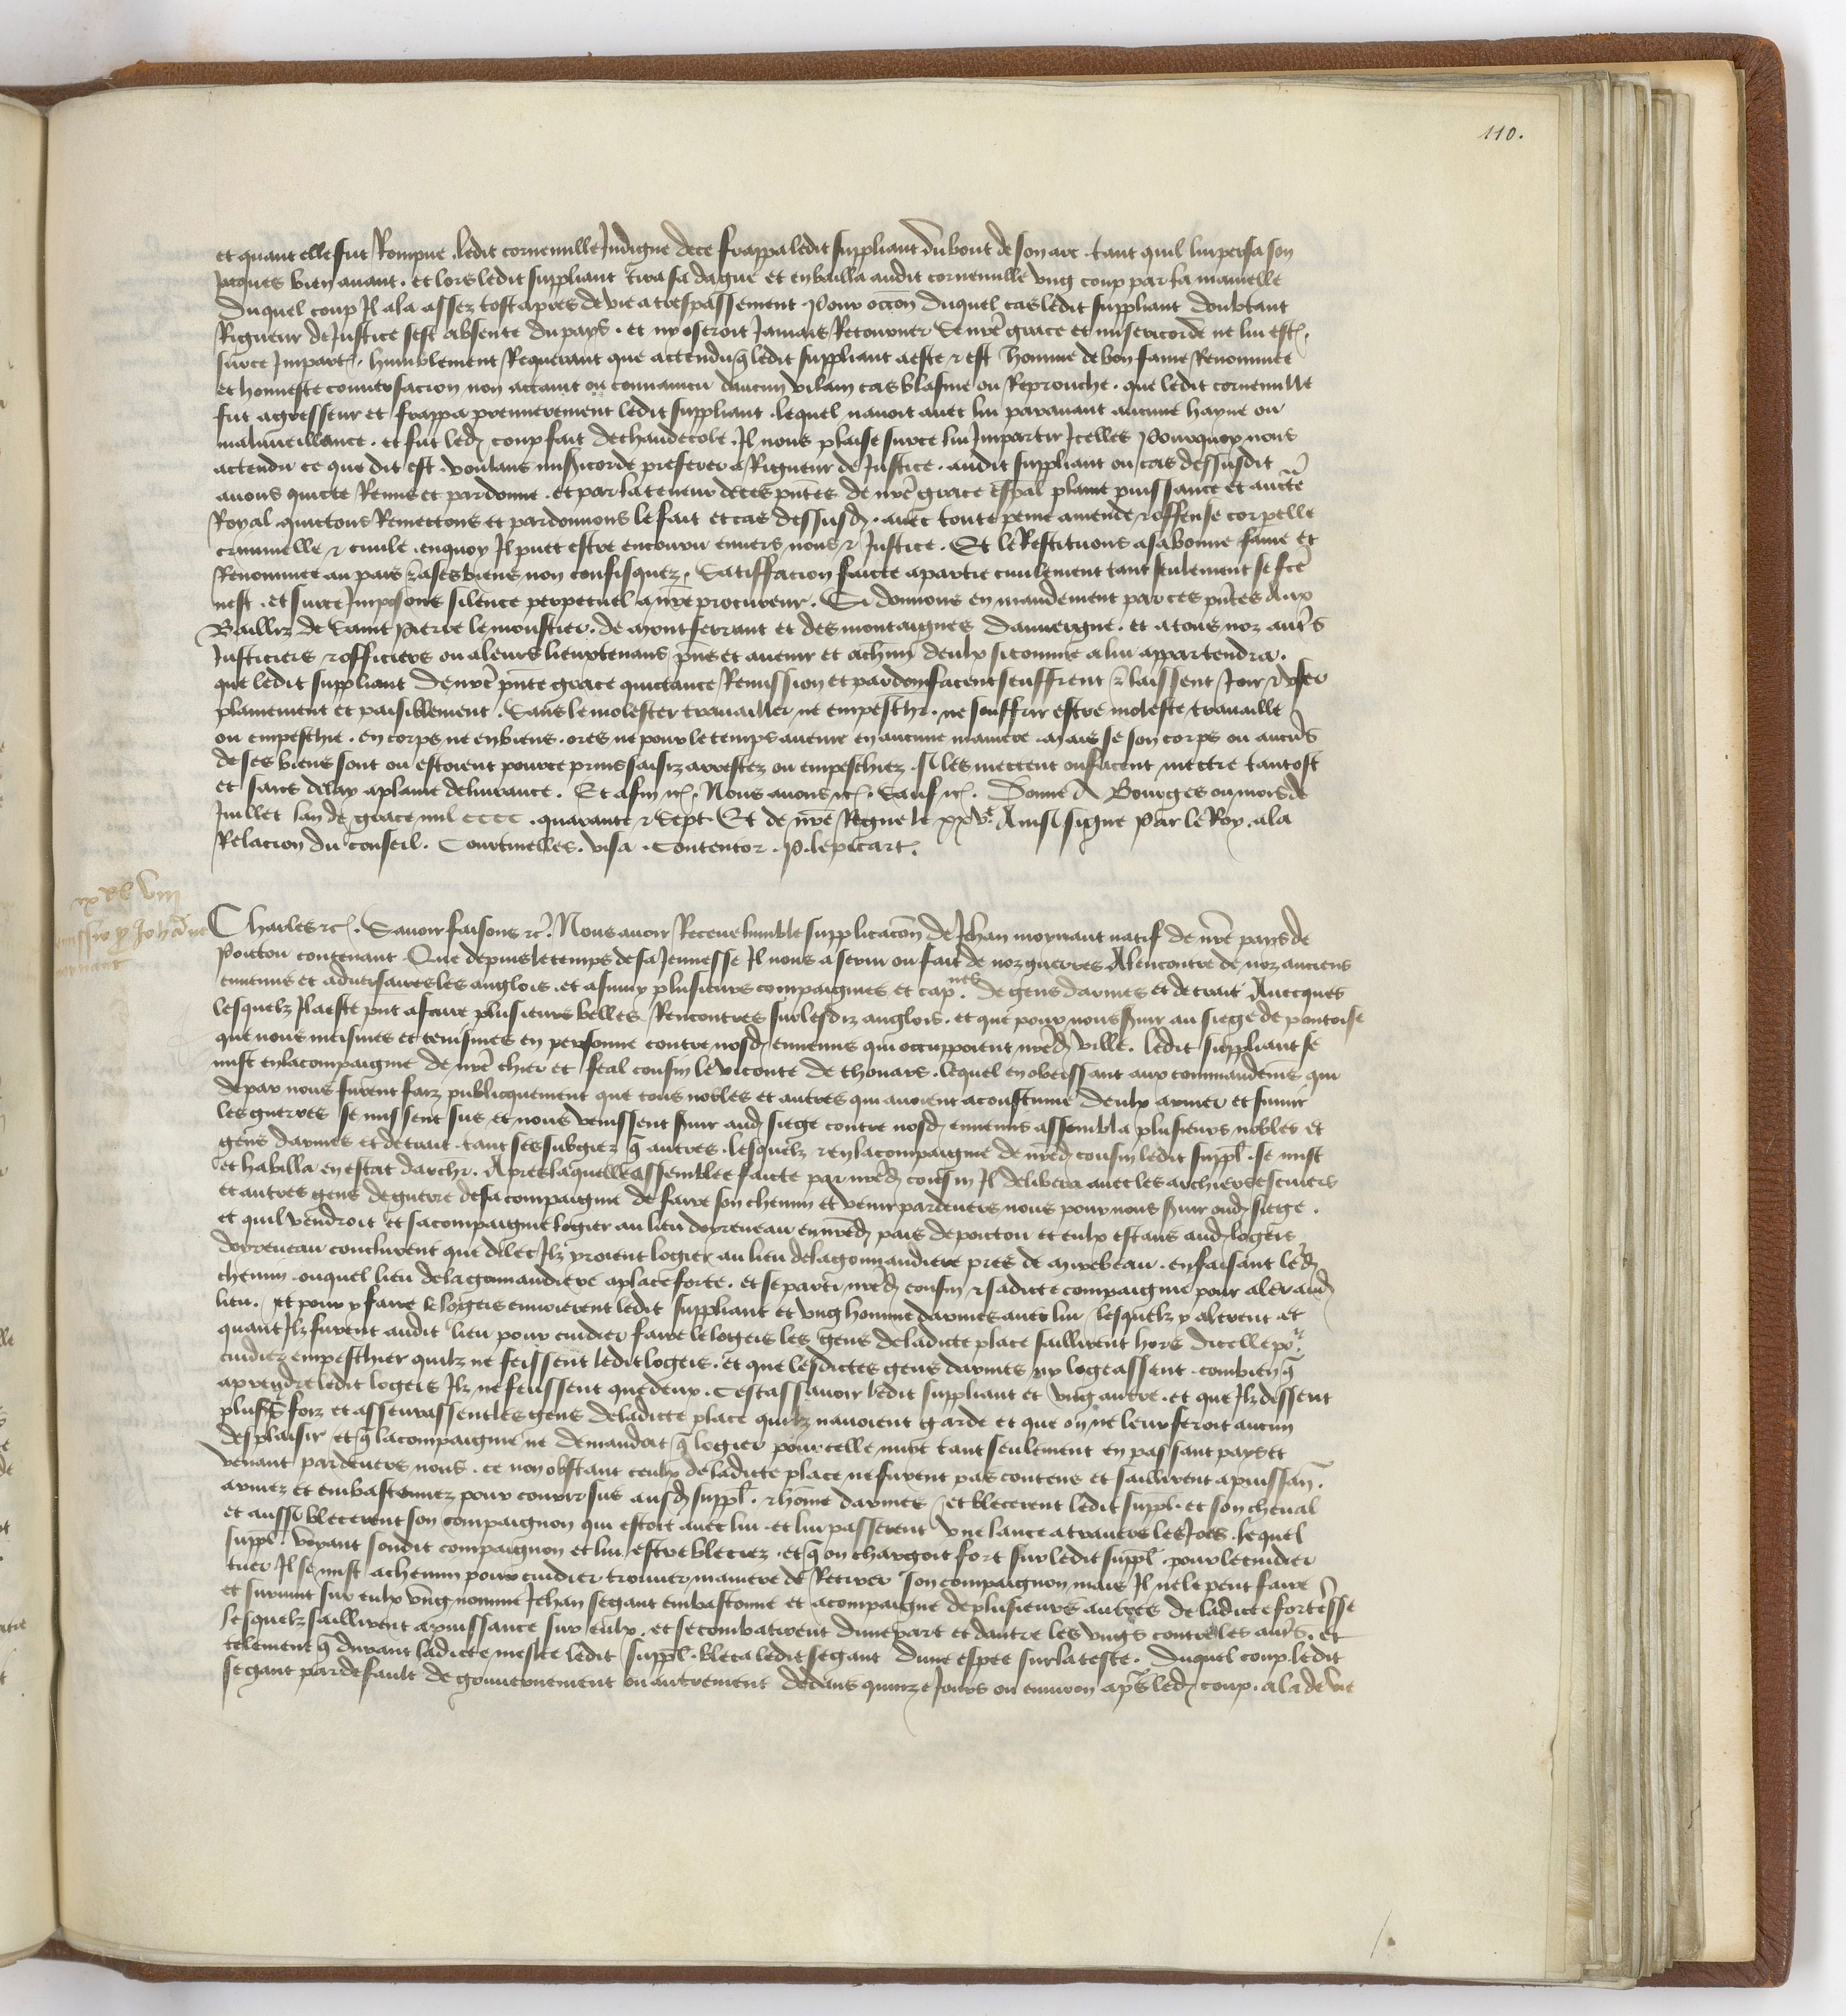 110.
et quant elle fut Rompue . ledit cornemille Indigne dece frappa ledit suppliant du bout de son arc . tant quil lui persa son
Jacques bien avant . et lors ledit suppliant tira sa dague et en bailla audit cornemille ung coup par la mamelle
Duquel coup Il ala assez tost apres de vie a trespassement . Pour occon duquel cas ledit suppliant doubtant
Rigueur de Justice sest absente du pays . et ny oseroit Jamais Retourner Se nre grace et misericorde ne lui est
surce Impart . humblement Requerant que actendu q ledit suppliant a este & est homme de bon fame Renommee
et honneste conversacion non actaint ou convaincu daucun vilain cas blasme ou Reprouche . que ledit cornemille
fut agresseur et frappa premierement ledit suppliant . lequel navoit avec lui paravant aucune hayne ou
malveillance . et fut led coup fait de chaudecole . Il nous plaise surce lui Impartir Icelles Pourquoy nous
actendu ce que dit est . voulans misericorde preferer a Rigueur de Justice . audit suppliant ou cas dessusdit
avons quicte Remis et pardonne . et par la teneur de ces pntes de nre grace espal plaine puissance et aucte
Royal quictons Remectons et pardonnons le fait et cas dessusd . avec toute peine amende & offense corpelle
criminelle & civile . enquoy Il puet estre encouru envers nous & Justice . Et le Restituons a sa bonne fame et
Renommee au pais & a ses biens non confisquez . Satisfacion faicte a partie civilement tant seulement se fce
nest . et surce Imposons silence perpetuel a nre procureur . Si donnons en mandement par ces pntes Aux
Bailliz de Saint Pierre le moustier . de montferrant et des montaignes dauvergne . et a tous noz autrs
Justiciers & officiers ou a leurs lieuxtenans pns et avenir et a chun deulx si comme a lui appartendra .
que ledit suppliant de nre pnte grace quictance Remission et pardon facent seuffrent & laissent Joir & user
plainement et paisiblement . Sans le molester travailler ne empeschr . ne souffrir estre moleste travaille
ou empeschie . en corps ne en biens . ores ne pour le temps avenir en aucune maniere . mais se son corps ou aucuns
de ses biens sont ou estoient pource prins saisiz arrestez ou empeschiez . Si les mectent ou facent mectre tantost
et sans delay a plaine delivrance . Et afin &c . Nous avons &c . Sauf &c . Donne A Bourges ou mois de
Juillet lan de grace mil cccc . quarante & sept . Et de nre Regne le xxve . Ainsi signe Par le Roy . ala
Relacion du conseil . Courtinelles . visa . Contentor . P. le picart .
Charles &c . Savoir faisons &c . Nous avoir Receue humble supplicacon de Jehan mornant natif de nre pays de
Poictou contenant . Que depuis le temps de sa Jeunesse Il nous a servi ou fait de noz guerres Alencontre de noz anciens
ennemis et adversaires les anglois . et a suivy plusieurs compaignies et capnes . de gens darmes et de trait Avecques
lesquelz Il a este pnt a faire plusieurs belles Rencontres sur lesdiz anglois . et que pour nous svir au siege de pontoise
que nous meismes et tenismes en personne contre nosd ennemis qui occuppoient nred ville . ledit suppliant se
mist en la compaignie de nre chier et feal cousin le viconte de thouars . lequel en obeissant aux commandemens qui
depar nous furent faiz publicquement que tous nobles et autres qui avoient acoustume deulx armer et suivir
les guerres se missent sus et nous venissent svir aud siege contre nosd ennemis assembla plusieurs nobles et
gens darmes et de trait . tant ses subgiez q autres . lesquelz & en la compaignie de nred cousin ledit suppl . se mist
et habilla en estat darchr . Apres laquelle assemblee faicte par nred cousin Il delibera avec les archiers escuiers
et autres gens de guerre de sa compaignie de faire son chemin et venir pardevers nous pour nous svir oud siege .
et quil vendroit et sa compaignie logier au lieu doyreneau en nred pais de poictou et eulx estans aud logeis
doyreneau conclurent que dilec Ilz yroient logier au lieu de la gonnandiere pres de mirebeau . en faisant led
chemin . ouquel lieu de la gonnandiere a place forte . et se parti nred cousin & sadicte compaignie pour aler aud
lieu . et pour y faire le logeis envoierent ledit suppliant et ung homme darmes avec lui lesquelz y alerent et
quant Ilz furent audit lieu pour cuidier faire le logeis les gens de ladicte place saillirent hors dicelle por
cuidier empeschier quilz ne feissent ledit logeis . et que lesdictes gens darmes ny logeassent . combien q
a prendre ledit logeis Ilz ne feussent que deux . Cestassavoir ledit suppliant et ung autre . et que Ilz dissent
plusrs foiz et asseurassent les gens de ladicte place quilz navoient garde et que on ne leur feroit aucun
desplaisir et q la compaignie ne demandoit q logier pour celle nuit tant seulement en passant pays et
venant pardevers nous . ce non obstant ceulx de ladicte place ne furent pas contens et saillirent a puissan .
armez et embastonnez pour courir sus ausd suppl . & home darmes et blecerent ledit suppl . et son cheval
et aussi blecerent son compaignon qui estoit avec lui et lui passerent une lance a travers les Joes . lequel
suppl . voyant sondit compaignon et lui estre bleciez . et q on chargoit fort sur ledit suppl . pour le cuidier
tuer Il se mist a chemin pour cuidier trouver maniere de Retirer son compaignon mais Il ne le peut faire
et survint sur eulx ung nomme Jehan segant embastonne et acompaigne de plusieurs autres de ladicte forteresse
lesquelz saillirent a puissance sur eulx . et se combatirent dune part et dautre les ungs contre les autrs . et
telement q durant ladicte meslee ledit suppl . bleca ledit segant dune espee sur la teste . Duquel coup ledit
segant par default de gouvernement ou autrement dedans quinze Jours ou environ aps led coup . ala de vie